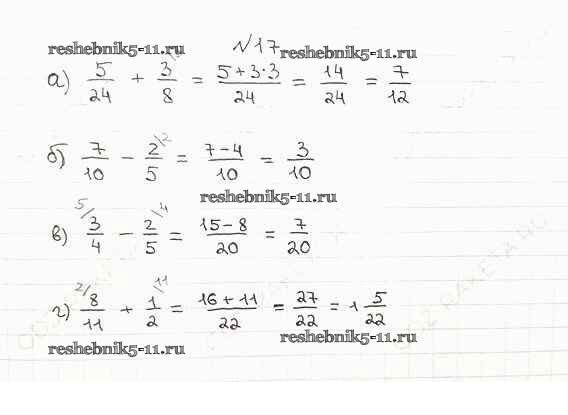 №17
reshebnik5-11.ru reshebnik5-11.ru
а) 5/24 + 3/8 = (5+3·3)/24 = 14/24 = 7/12
б) 7/10 − 2/5 = (7−4)/10 = 3/10
reshebnik5-11.ru
в) 3/4 − 2/5 = (15−8)/20 = 7/20
г) 8/11 + 1/2 = (16+11)/22 = 27/22 = 1 5/22
reshebnik5-11.ru reshebnik5-11.ru